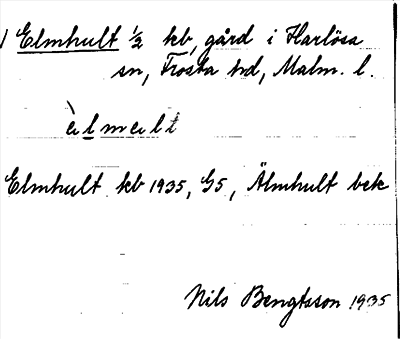 Elmhult 1/2 kb, gård i Harlösa
sn, Frosta hd, Malm. l.
èlmelt
Elmhult kb 1935, G5, Älmhult bek
Nils Bengtsson 1935